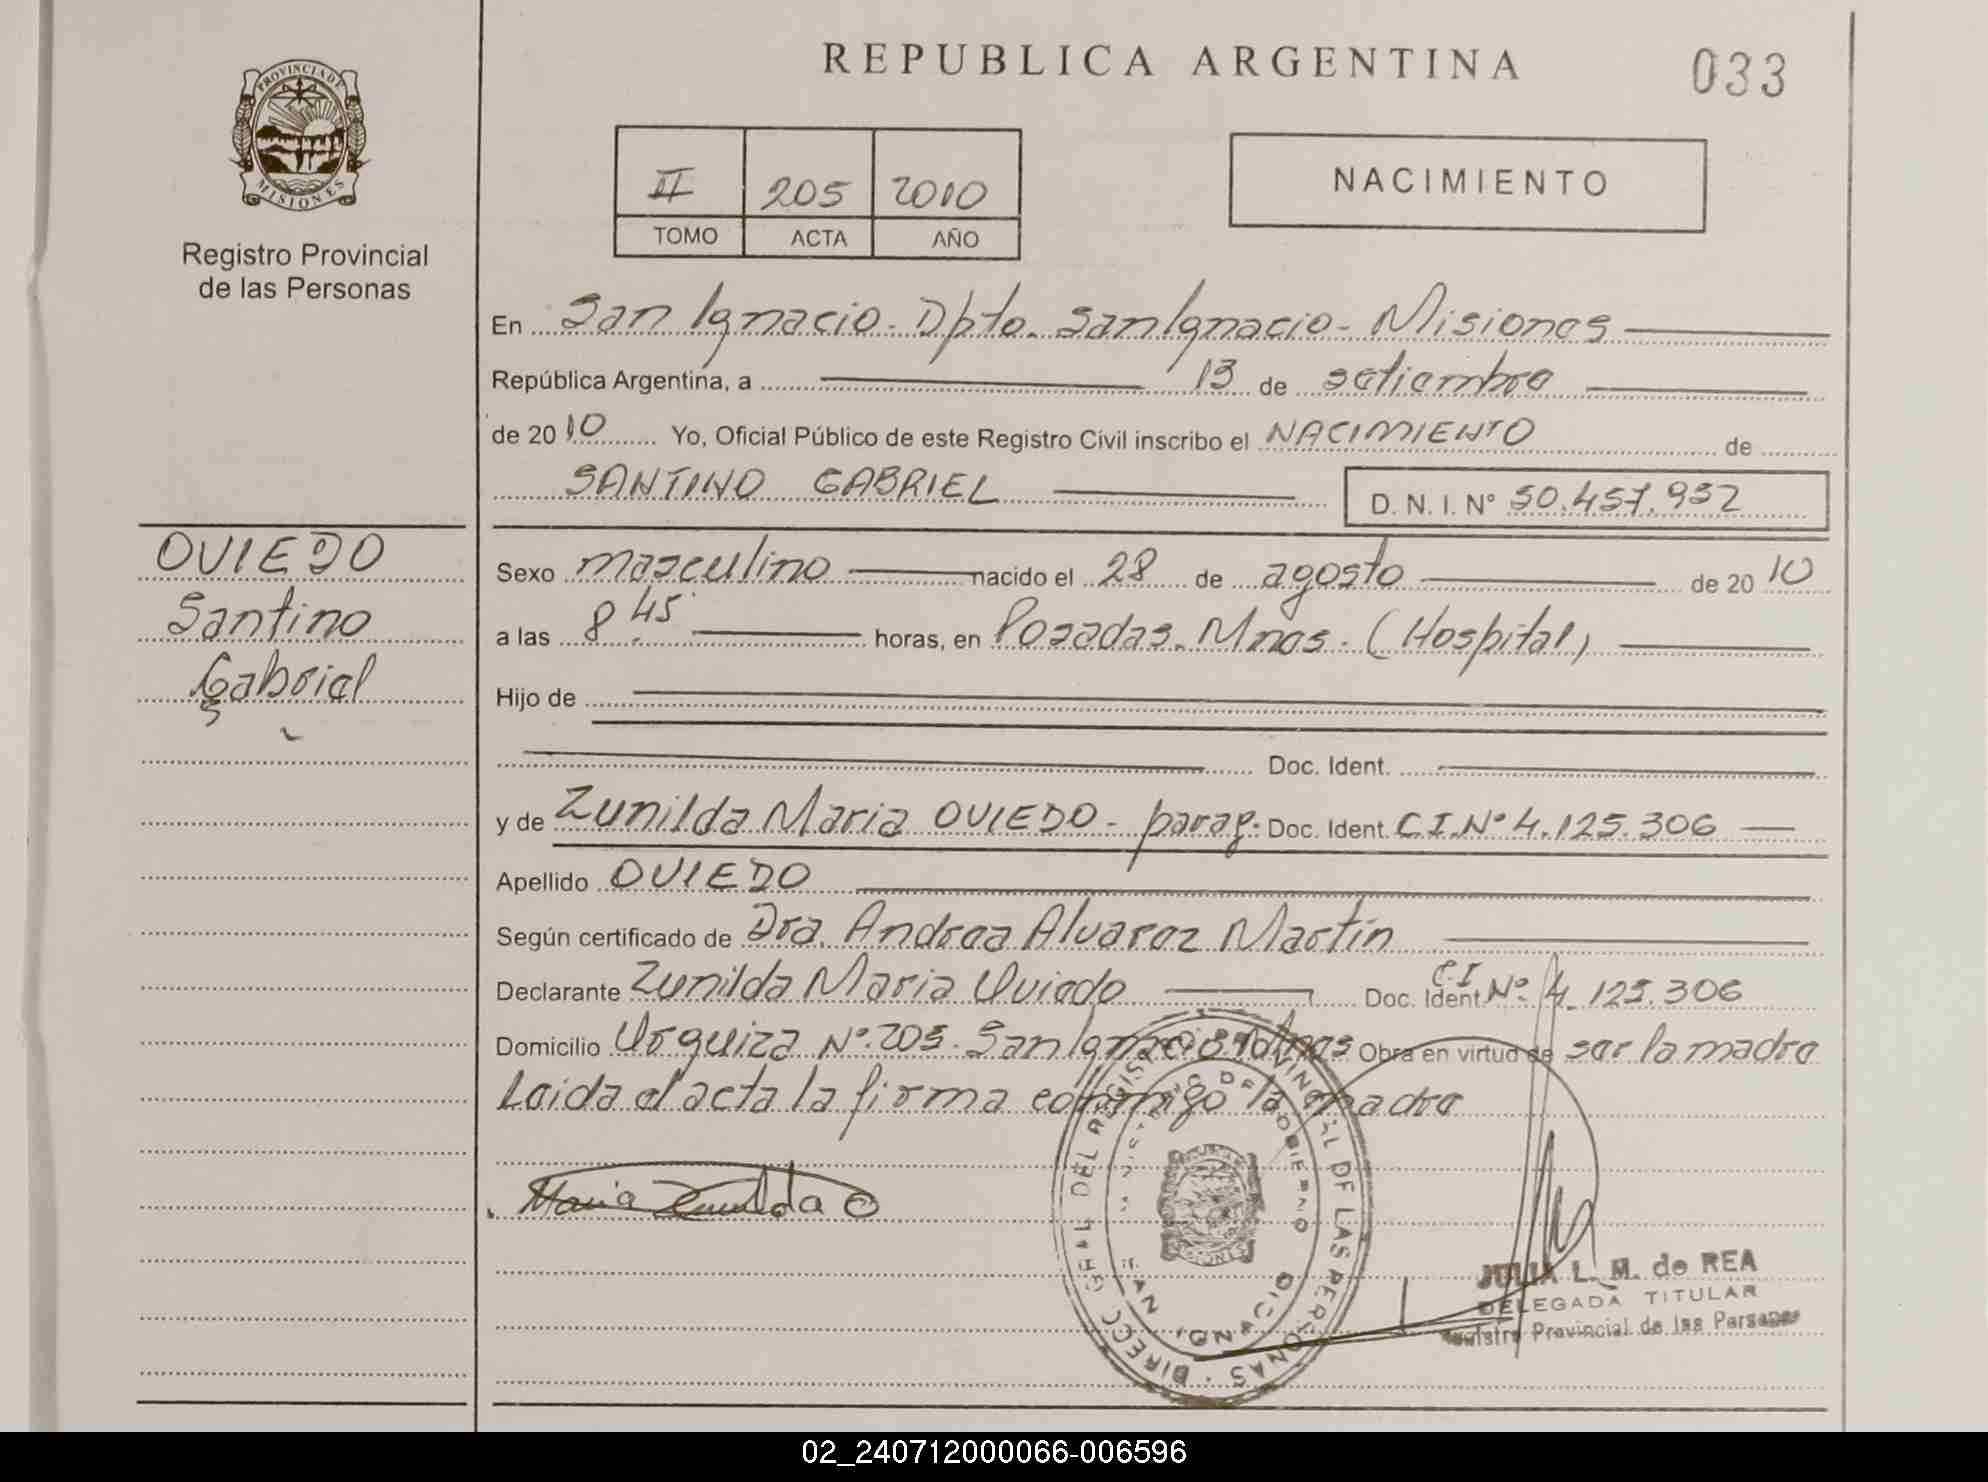 REPUBLICA ARGENTINA
033
PROVINCIA DE
MISIONES
Registro Provincial
de las Personas
II 205 2010
TOMO ACTA AÑO
NACIMIENTO
En San Ignacio - Dpto. San Ignacio - Misiones
República Argentina, a 13 de setiembre
de 2010 Yo, Oficial Público de este Registro Civil inscribo el NACIMIENTO de
SANTINO GABRIEL D. N. I. N° 50.457.932
OVIEDO
Santino
Gabriel
Sexo masculino nacido el 28 de agosto de 2010
a las 8 45 horas, en Posadas. Mnes. (Hospital)
Hijo de
Doc. Ident.
y de Zunilda Maria OVIEDO - parag. Doc. Ident. C.I.N° 4.125.306
Apellido OVIEDO
Según certificado de Dra. Andrea Alvarez Martín
Declarante Zunilda Maria Oviedo Doc. Ident. C.I N° 4.125.306
Domicilio Urquiza N° 205. San Ignacio Mnes Obra en virtud de ser la madre
Leida el acta la firma conmigo la madre
Maria Zunilda O
DIRECC. GRAL. DEL REGISTRO PROVINCIAL DE LAS PERSONAS
MINISTERIO DE GOBIERNO
SAN IGNACIO
MISIONES
JULIA L. M. de REA
DELEGADA TITULAR
Registro Provincial de las Personas
02_240712000066-006596